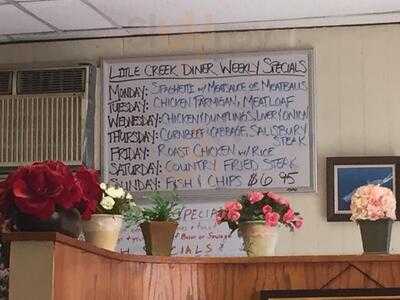 LITTLE CREEK DINER WEEKLY SPECIALS
MONDAY: SPAGHETTI w/ MEATSAUCE OR MEATBALLS
TUESDAY: CHICKEN PARMIGAN, MEATLOAF
WEDNESDAY: CHICKEN/DUMPLINGS, LIVER/ONION
THURSDAY: CORNBEEF/CABBAGE, SALISBURY STEAK
FRIDAY: ROAST CHICKEN w/ RICE
SATURDAY: COUNTRY FRIED STEAK
SUNDAY: FISH & CHIPS $6.95
SPECIALS